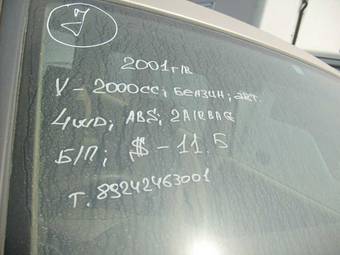 2001 г/в
V - 2000cc; бензин; авт.
4WD; ABS; 2AIRBAG
Б/П; $ - 11.5
т. 89242463001